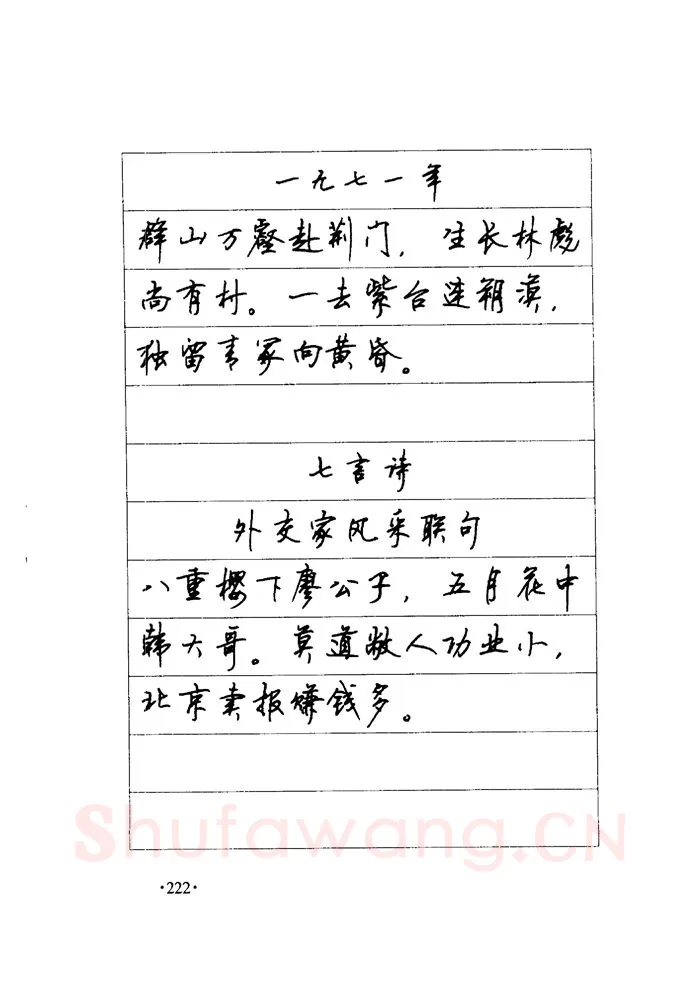 一九七一年
群山万壑赴荆门，生长林彪
尚有村。一去紫台连朔漠，
独留青冢向黄昏。
七言诗
外交家风采联句
八重樱下廖公子，五月花中
韩大哥。莫道敝人功业小，
北京卖报赚钱多。
Shufawang.CN
·222·